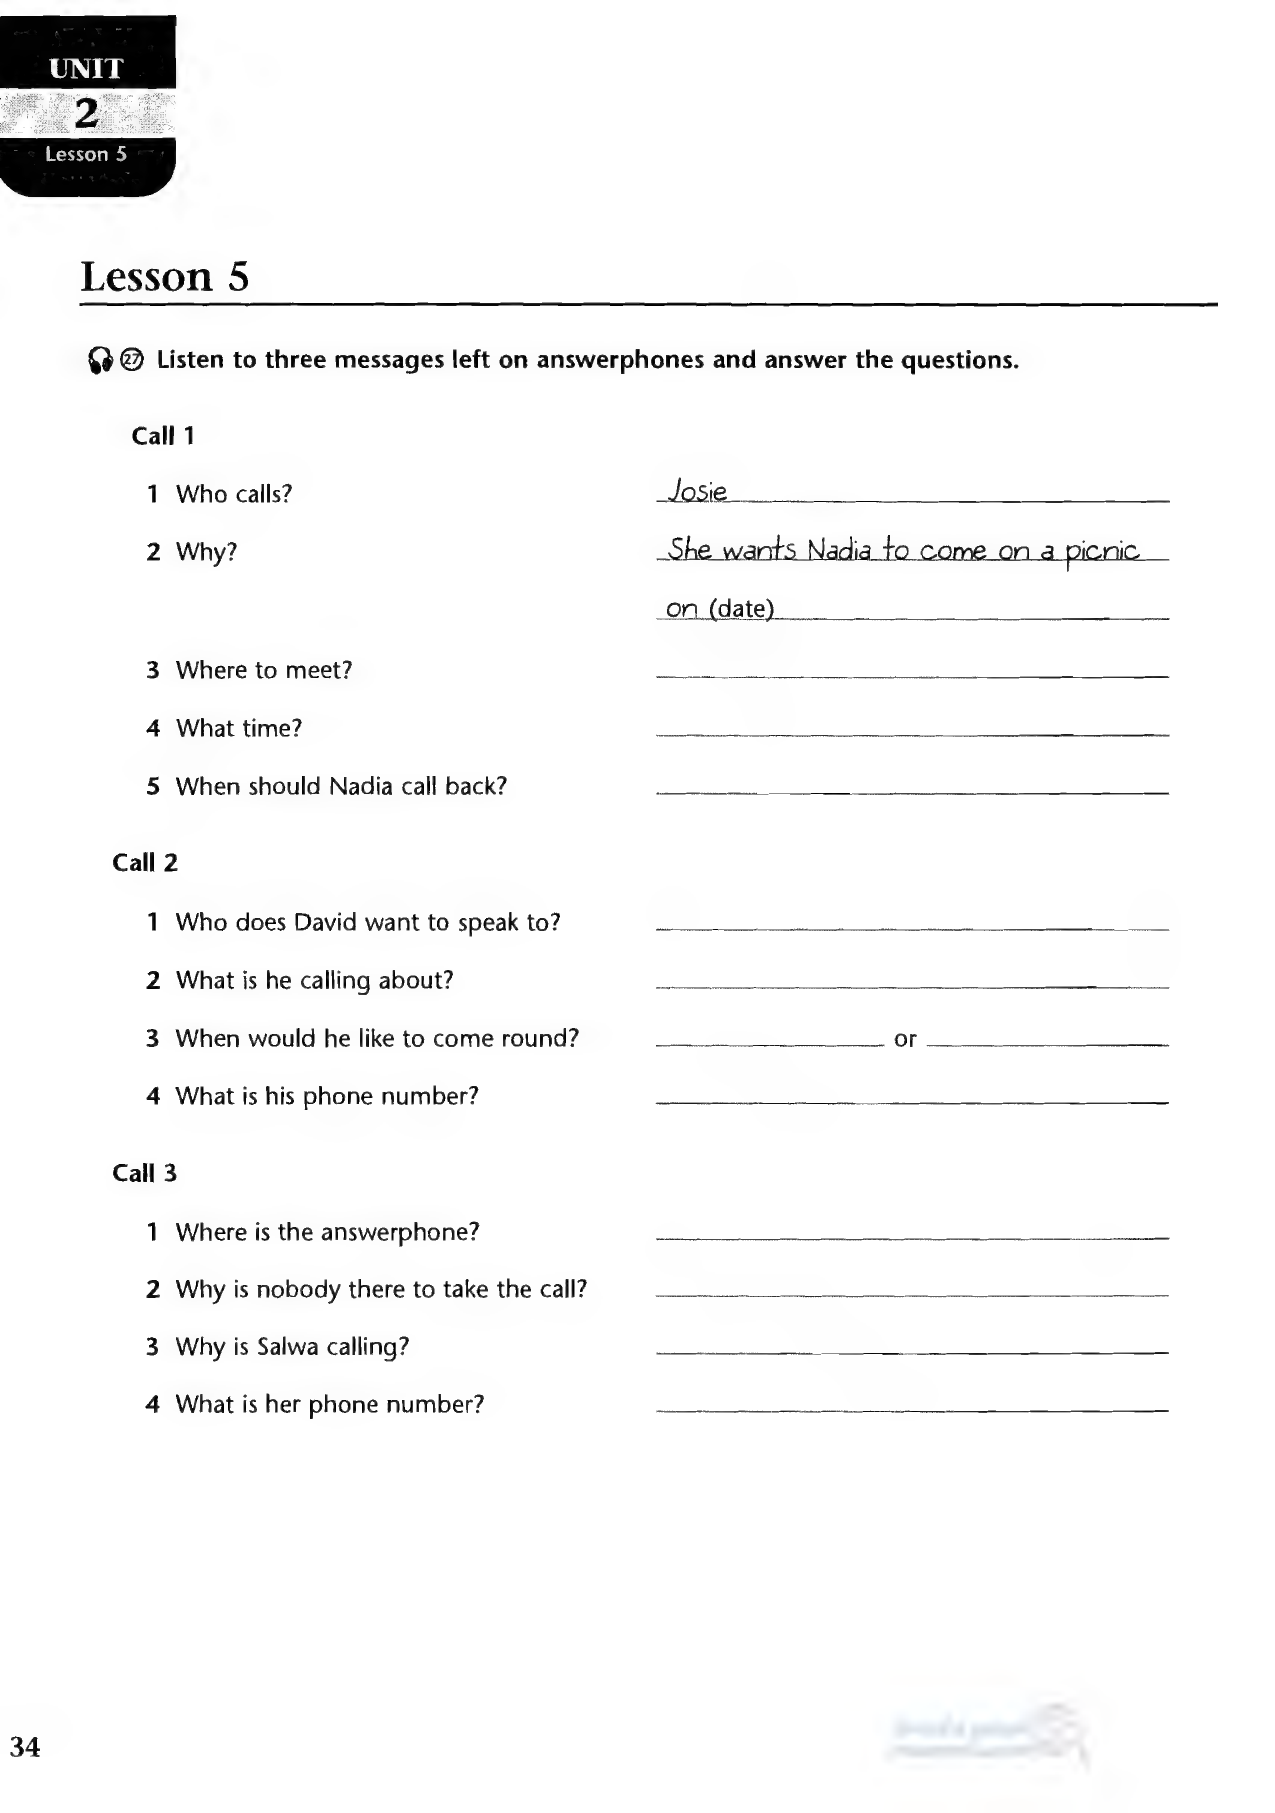 UNIT
2
Lesson 5
Lesson 5
27 Listen to three messages left on answerphones and answer the questions.
Call 1
1 Who calls? Josie
2 Why? She wants Nadia to come on a picnic
on (date)
3 Where to meet?
4 What time?
5 When should Nadia call back?
Call 2
1 Who does David want to speak to?
2 What is he calling about?
3 When would he like to come round? or
4 What is his phone number?
Call 3
1 Where is the answerphone?
2 Why is nobody there to take the call?
3 Why is Salwa calling?
4 What is her phone number?
34